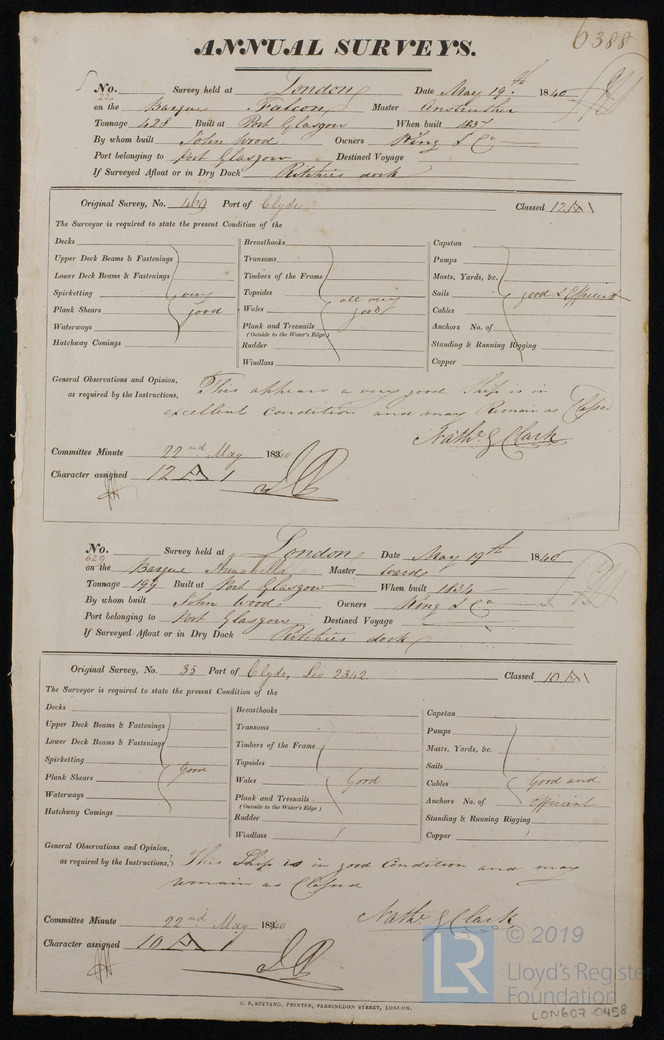 6388
ANNUAL SURVEYS.
No. 22 Survey held at London Date May 19th 1840
on the Barque Falcon Master Anstruther
Tonnage 428 Built at Port Glasgow When built 1837
By whom built John Wood Owners King & Co
Port belonging to Port Glasgow Destined Voyage
If Surveyed Afloat or in Dry Dock Ritchies dock
Original Survey, No. 469 Port of Clyde Classed 12 A 1
The Surveyor is required to state the present Condition of the
Decks
Upper Deck Beams & Fastenings
Lower Deck Beams & Fastenings
Spirketting very
Plank Shears good
Waterways
Hatchway Comings
Breasthooks
Transoms
Timbers of the Frame
Topsides all very
Wales good
Plank and Treenails
(Outside to the Water's Edge)
Rudder
Windlass
Capstan
Pumps
Masts, Yards, &c.
Sails good & Efficient
Cables
Anchors No. of
Standing & Running Rigging
Copper
General Observations and Opinion, This appears a very good Ship is in
as required by the Instructions, excellent Condition and may Remain as Classed
Nathl G Clark
Committee Minute 22nd May 1840
Character assigned 12 A 1
No. 629 Survey held at London Date May 19th 1840
on the Barque Annabella Master Ward
Tonnage 199 Built at Port Glasgow When built 1834
By whom built John Wood Owners King & Co
Port belonging to Port Glasgow Destined Voyage
If Surveyed Afloat or in Dry Dock Ritchies dock
Original Survey, No. 35 Port of Clyde, Lio 2342 Classed 10 A 1
The Surveyor is required to state the present Condition of the
Decks
Upper Deck Beams & Fastenings
Lower Deck Beams & Fastenings
Spirketting
Plank Shears Good
Waterways
Hatchway Comings
Breasthooks
Transoms
Timbers of the Frame
Topsides
Wales Good
Plank and Treenails
(Outside to the Water's Edge)
Rudder
Windlass
Capstan
Pumps
Masts, Yards, &c.
Sails
Cables Good and
Anchors No. of Efficient
Standing & Running Rigging
Copper
General Observations and Opinion,
as required by the Instructions, This Ship is in good Condition and may
remain as Classed
Nathl G Clark
Committee Minute 22nd May 1840
Character assigned 10 A 1
C. F. SEYFANG, PRINTER, FARRINGDON STREET, LONDON.
LR © 2019
Lloyd's Register
Foundation
LON607-0458